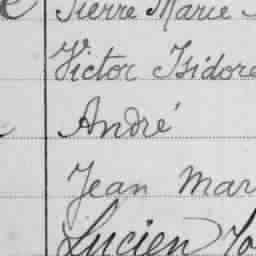 Pierre Marie
Victor Isidore
André
Jean Mar
Lucien